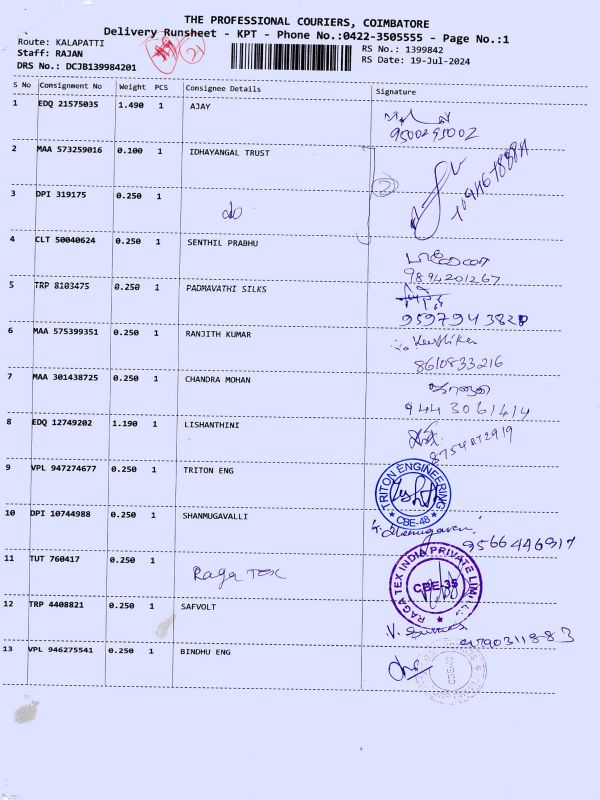 THE PROFESSIONAL COURIERS, COIMBATORE
Delivery Runsheet - KPT - Phone No.:0422-3505555 - Page No.:1
Route: KALAPATTI
RS No.: 1399842
Staff: RAJAN
21
RS Date: 19-Jul-2024
DRS No.: DCJB139984201
S No Consignment No Weight PCS Consignee Details Signature
1 EDQ 21575035 1.490 1 AJAY
9500295002
2 MAA 573259016 0.100 1 IDHAYANGAL TRUST
2
3 DPI 319175 0.250 1 do
4 CLT 50040624 0.250 1 SENTHIL PRABHU
9894201267
5 TRP 8103475 0.250 1 PADMAVATHI SILKS
6 MAA 575399351 0.250 1 RANJITH KUMAR
8610833216
7 MAA 301438725 0.250 1 CHANDRA MOHAN
944 3061414
8 EDQ 12749202 1.190 1 LISHANTHINI
9 VPL 947274677 0.250 1 TRITON ENG
TRITON ENGINEERING
CBE-48
10 DPI 10744988 0.250 1 SHANMUGAVALLI
9566446917
11 TUT 760417 0.250 1 Raga Tex
RAGA TEX INDIA PRIVATE LIMITED
CBE-35
12 TRP 4408821 0.250 1 SAFVOLT
13 VPL 946275541 0.250 1 BINDHU ENG